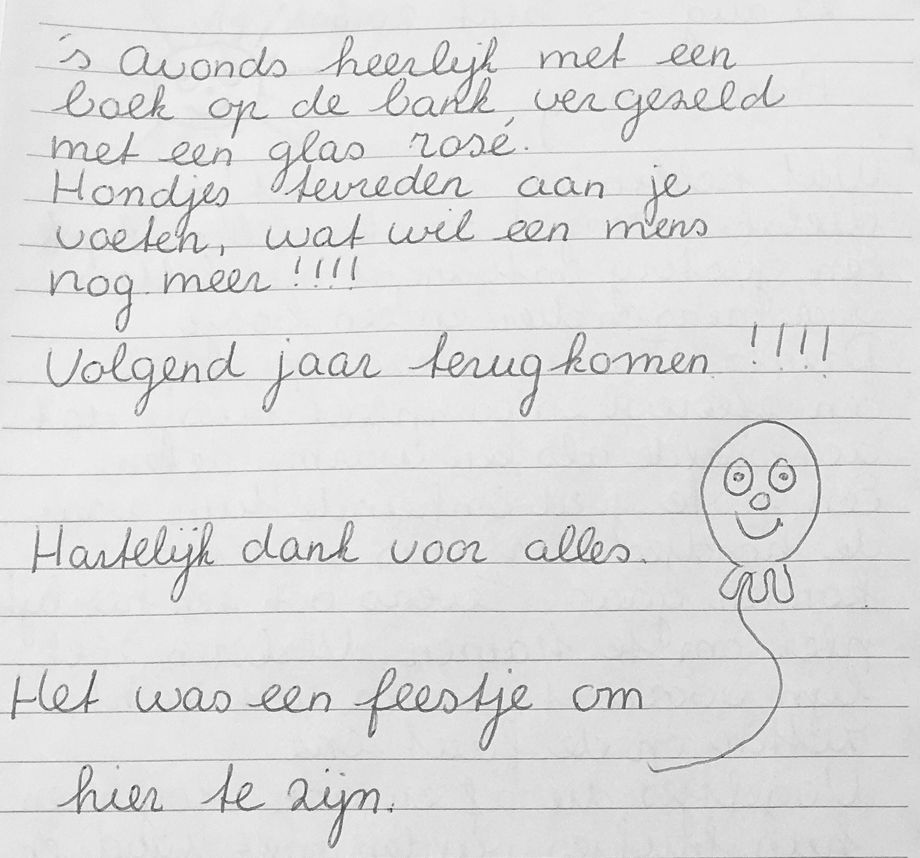 's Avonds heerlijk met een
boek op de bank, vergezeld
met een glas rosé.
Hondjes tevreden aan je
voeten, wat wil een mens
nog meer !!!!
Volgend jaar terugkomen !!!!
Hartelijk dank voor alles.
Het was een feestje om
hier te zijn.